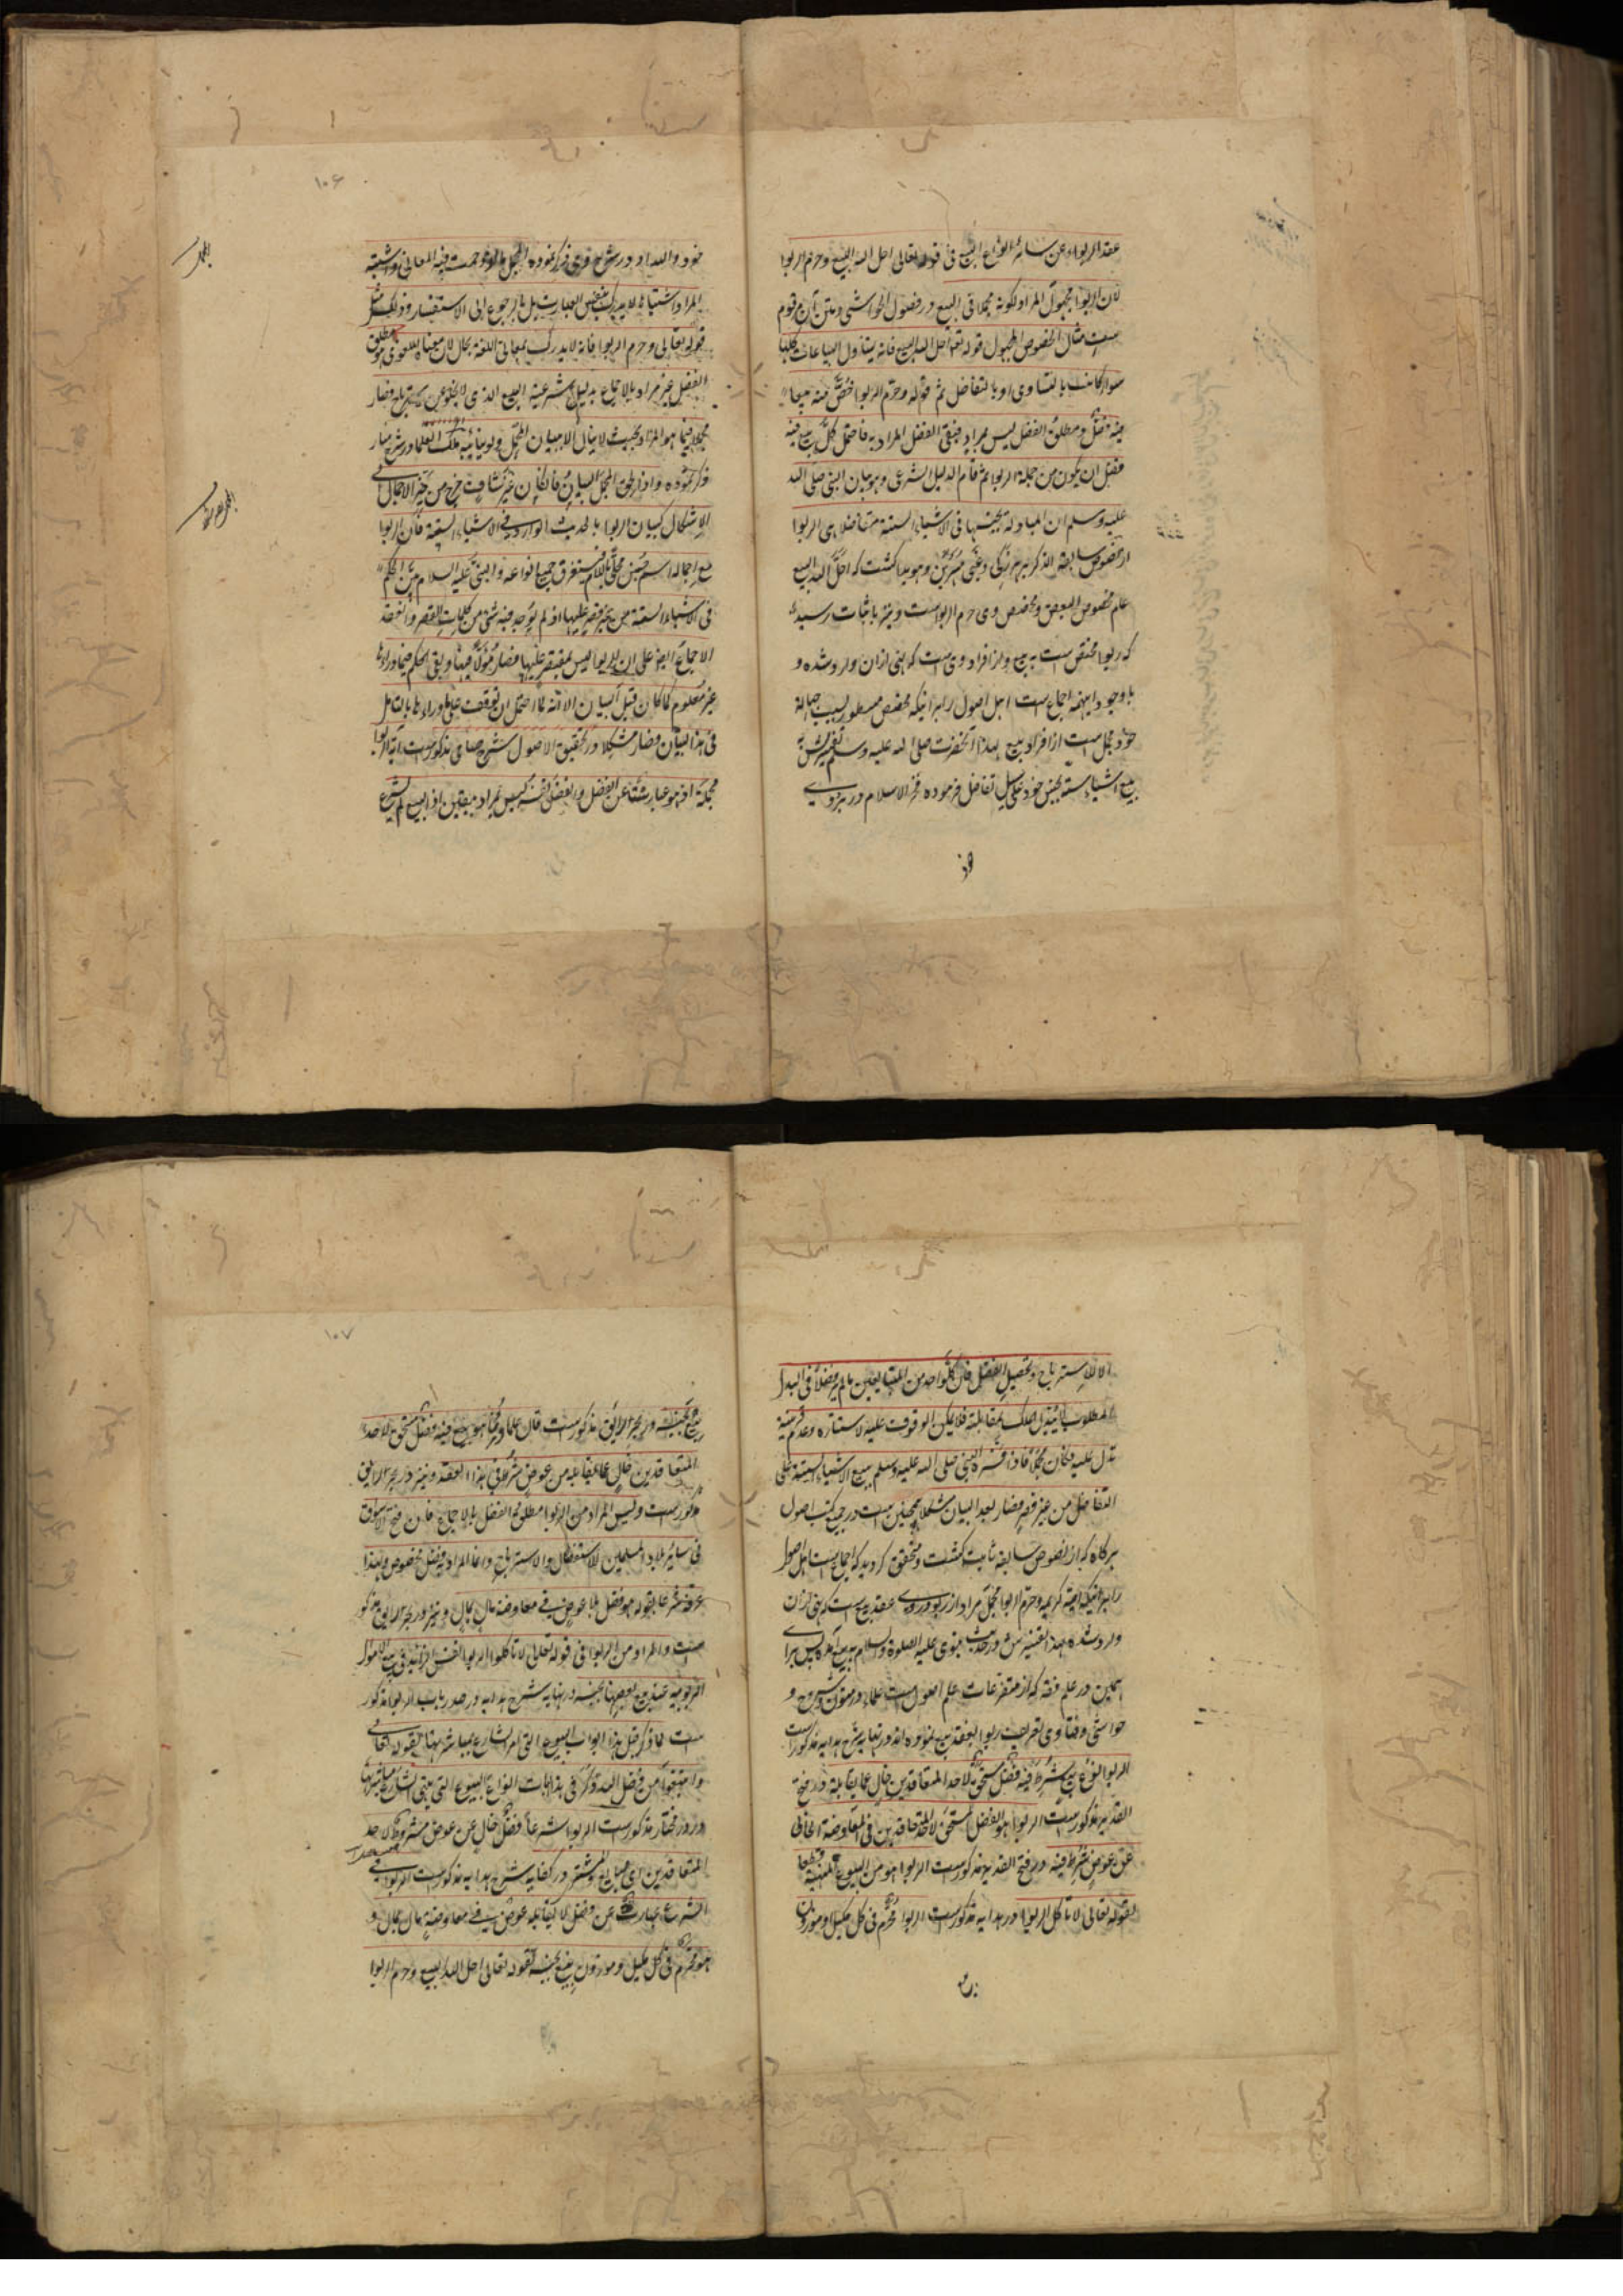 عقد الربواء عن سائر انواع البیع فی قوله تعالی احل الله البیع وحرم الربوا
لان الربوا مجهول المراد لکونه مجملا فی البیع و در فصول الحواشی و متن آن مرقوم
ست مثال الخصوص المجهول قوله تعالی احل الله البیع فانه یتناول البیاعات کلها
سواء کانت بالتساوی او بالتفاضل ثم قوله وحرم الربوا خص منه بیعا
فیه فضل ومطلق الفضل لیس بمراد فبقی الفضل المراد به فاحتمل کل بیع فیه
فضل ان یکون من جملة الربوا ثم قام الدلیل الشرعی وهو بیان النبی صلی الله
علیه وسلم ان المبادلة بجنسها فی الاشیاء الستة متفاضلا هی الربوا
از نصوص سابقة الذکر بر هر زکی و غبی مبرهن و هویدا گشت که احل الله البیع
عام مخصوص البعض و مخصص وی حرم الربواست و نیز باثبات رسیده
که ربوا مختص ست به بیع و از افراد وی ست که نهی ازان وارد شده و
باوجود اینهمه اجماع ست اهل اصول را بر اینکه مخصص مسطور بسبب جهالة
خود مجمل ست از افراد بیع لهذا آنحضرت صلی الله علیه وسلم تفسیرش به
بیع اشیاء سته بجنس خود علی سبیل تفاضل فرموده فخر الاسلام در بزدوی
۱۰۶
خود و الله داد در شرح وی ذکر نموده المجمل ما ازدحمت فیه المعانی واشتبه
المراد اشتباها لا یدرک بنفس العبارت بل بالرجوع الی الاستفسار وذلک مثل
قوله تعالی وحرم الربوا فانه لا یدرک بمعانی اللغة بحال لان معناه اللغوی وهو مطلق
الفضل غیر مراد بالاجماع بدلیل شرعیة البیع الذی لا یخلو عن فصار
مجملا فیما هو المراد بحیث لا ینال الا ببیان المجمل ملک العلما در شرح منار
ذکر نموده واذا لحق المجمل البیان فان کان غیر شاف خرج من حیز الاجمال الی
الاشکال کبیان الربوا بالحدیث الوارد فی الاشیاء الستة فان الربوا
مع اجماله اسم جنس محلی باللام فیستغرق جمیع انواعه والنبی علیه السلام بین الحکم
فی الاشیاء الستة من غیر قصر علیها اذ لم یوجد فیه شی من کلمات القصر وانعقد
الاجماع ایضا علی ان الربوا لیس بمقتصر علیها فصار مؤولا فیها وبقی الحکم فیما وراءها
غیر معلوم کما کان قبل البیان الا انه لما احتمل ان یوقف علی ما وراءها بالتامل
فی هذا البیان فصار مشکلا و در تحقیق الاصول شرح حسامی مذکورست آیة الربوا
مجملة اذ هو عبارة عن الفضل والفضل نفسه لیس بمراد بیقین اذ البیع لم یشرع
الا للاسترباح وتحصیل الفضل فان کل واحد من المتبایعین ما لم یر فضلا فی البدل
المطلوب لا یبذل ملکه بمقابلته فلا یمکن الوقوف علیه لاستتاره وعدم قرینة
تدل علیه وکان مجملا فاذا فسره النبی صلی الله علیه وسلم ببیع الاشیاء الستة علی
التفاضل من غیر قصر فصار بعد البیان مشکلا همچنین ست در جمیع کتب اصول
هرگاه که از نصوص سابقه ثابت گشت و متحقق گردید که اجماع ست اهل اصول
را بر اینکه آیة کریمه وحرم الربوا مجمل مراد از ربو در وی عقد بیع ست که نهی ازان
وارد شده لهذا تفسیرش در حدیث نبوی علیه الصلوة والسلام به بیع آمد پس بنا بر
همین در علم فقه که از متفرعات علم اصول ست علماء در متون و شروح و
حواشی و فتاوی تعریف ربوا بعقد بیع نموده اند در نهایه شرح هدایه مذکورست
الربوا نوع بیع یشترط فیه فضل مستحق لاحد المتعاقدین خال عما یقابله و در فتح
القدیر مذکورست الربوا هو الفضل المستحق لاحد المتعاقدین فی المعاوضة الخالی
عن عوض شرط فیه و در فتح القدیر مذکورست الربوا هو من البیوع المنهیة قطعا
بقوله تعالی لا تاکلوا الربوا و در هدایه مذکورست الربوا محرم فی کل مکیل او موزون
۱۰۷
بیع بجنسه و در بحر الرایق مذکورست قال علماؤنا هو بیع فیه فضل مستحق لاحد
المتعاقدین خال عما یقابله من عوض شرط فی هذا العقد و نیز در بحر الرایق
مذکورست ولیس المراد من الربوا مطلق الفضل بالاجماع فان فتح الاسواق
فی سایر بلاد المسلمین للاستفضال والاسترباح وانما المراد فضل مخصوص ولهذا
عرفه شرعا بقوله هو فضل بلا عوض فی معاوضة مال بمال و نیز در بحر الرایق مذکور
ست والمراد من الربوا فی قوله تعالی لا تاکلوا الربوا نفس الزاید فی بیع الاموال
الربویة عند بیع بعضها بجنسه در نهایه شرح هدایه در صدر باب الربوا مذکور
ست لما ذکر قبل هذا ابواب البیوع التی امر الشارع بمباشرتها بقوله تعالی
وابتغوا من فضل الله ذکر فی هذا باب انواع البیوع التی نهی الشارع عن مباشرتها
و در در مختار مذکورست الربوا شرعا فضل خال عن عوض مشروط لاحد
المتعاقدین ای بایع او مشتر و در کفایه شرح هدایه مذکورست الربوا فی
الشرع عبارت عن فضل لا یقابله عوض فی معاوضة مال بمال و
هو محرم فی کل مکیل وموزون بیع بجنسه لقوله تعالی احل الله البیع وحرم الربوا